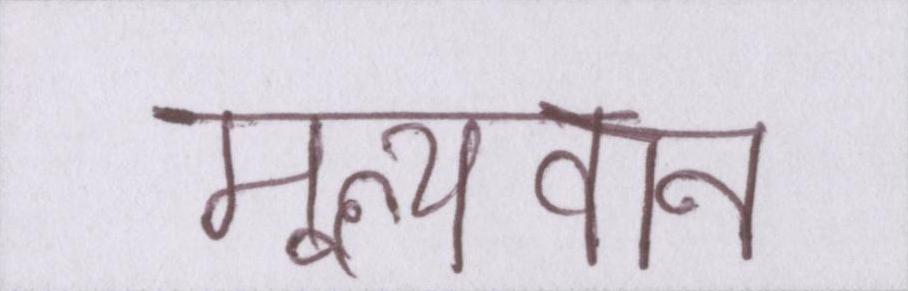 मूल्यवान